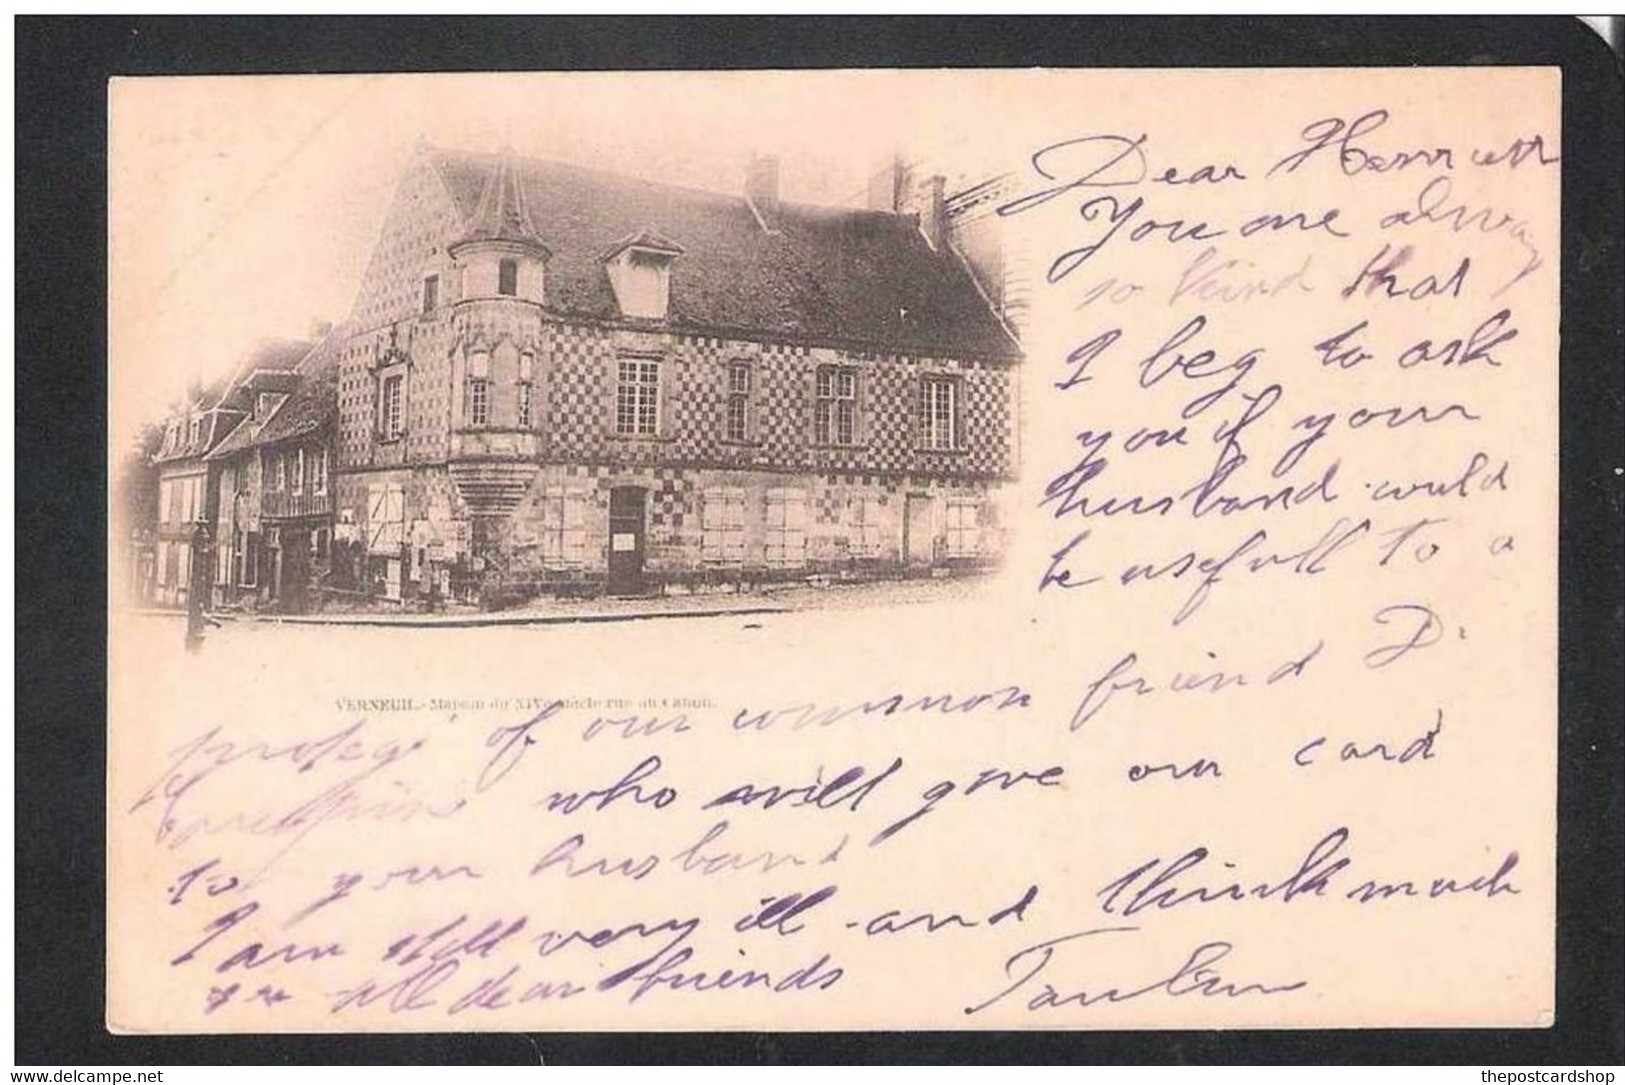 Dear
You are alway
so kind that
I beg to ask
you if your
husband could
be usefull to a
VERNEUIL.- Maison du XIVe siècle rue du Canon.
protegé of our common friend D.
who will give our card
to your husband
I am still very ill and think much
all dear friends
www.delcampe.net
thepostcardshop